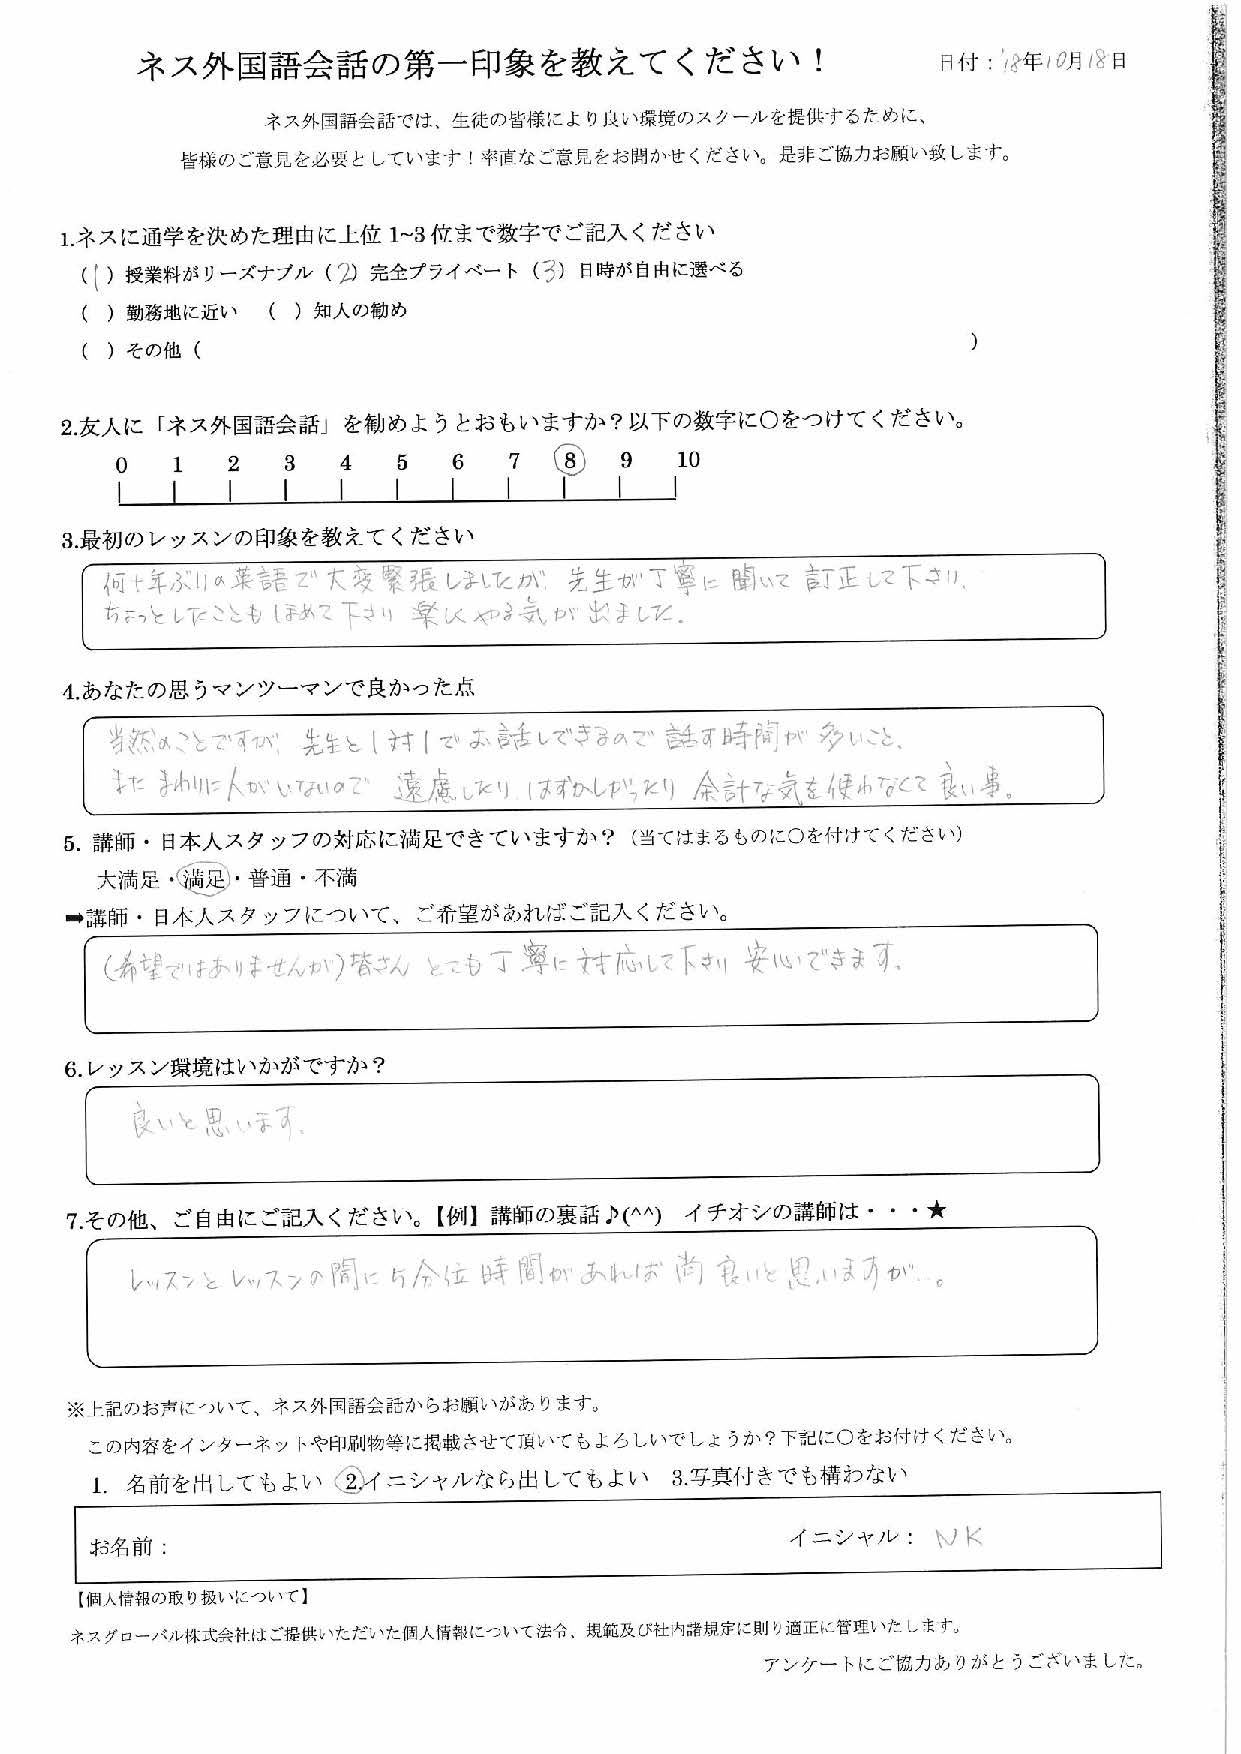 ネス外国語会話の第一印象を教えてください！
日付：'18年10月18日
ネス外国語会話では、生徒の皆様により良い環境のスクールを提供するために、
皆様のご意見を必要としています！率直なご意見をお聞かせください。是非ご協力お願い致します。
1.ネスに通学を決めた理由に上位 1~3 位まで数字でご記入ください
（1）授業料がリーズナブル（2）完全プライベート（3）日時が自由に選べる
（ ）勤務地に近い （ ）知人の勧め
（ ）その他（ ）
2.友人に「ネス外国語会話」を勧めようとおもいますか？以下の数字に〇をつけてください。
0 1 2 3 4 5 6 7 8 9 10
3.最初のレッスンの印象を教えてください
何十年ぶりの英語で大変緊張しましたが、先生が丁寧に聞いて訂正して下さり、
ちょっとしたこともほめて下さり楽しくやる気が出ました。
4.あなたの思うマンツーマンで良かった点
当然のことですが、先生と1対1でお話しできるので話す時間が多いこと、
またまわりに人がいないので 遠慮したり、はずかしがったり 余計な気を使わなくて良い事。
5. 講師・日本人スタッフの対応に満足できていますか？（当てはまるものに〇を付けてください）
大満足・満足・普通・不満
➡講師・日本人スタッフについて、ご希望があればご記入ください。
（希望ではありませんが）皆さん とても丁寧に対応して下さり 安心できます。
6.レッスン環境はいかがですか？
良いと思います。
7.その他、ご自由にご記入ください。【例】講師の裏話♪(^^) イチオシの講師は・・・★
レッスンとレッスンの間に5分位時間があれば尚良いと思いますが…。
※上記のお声について、ネス外国語会話からお願いがあります。
この内容をインターネットや印刷物等に掲載させて頂いてもよろしいでしょうか？下記に〇をお付けください。
1. 名前を出してもよい 2.イニシャルなら出してもよい 3.写真付きでも構わない
お名前： イニシャル： NK
【個人情報の取り扱いについて】
ネスグローバル株式会社はご提供いただいた個人情報について法令、規範及び社内諸規定に則り適正に管理いたします。
アンケートにご協力ありがとうございました。